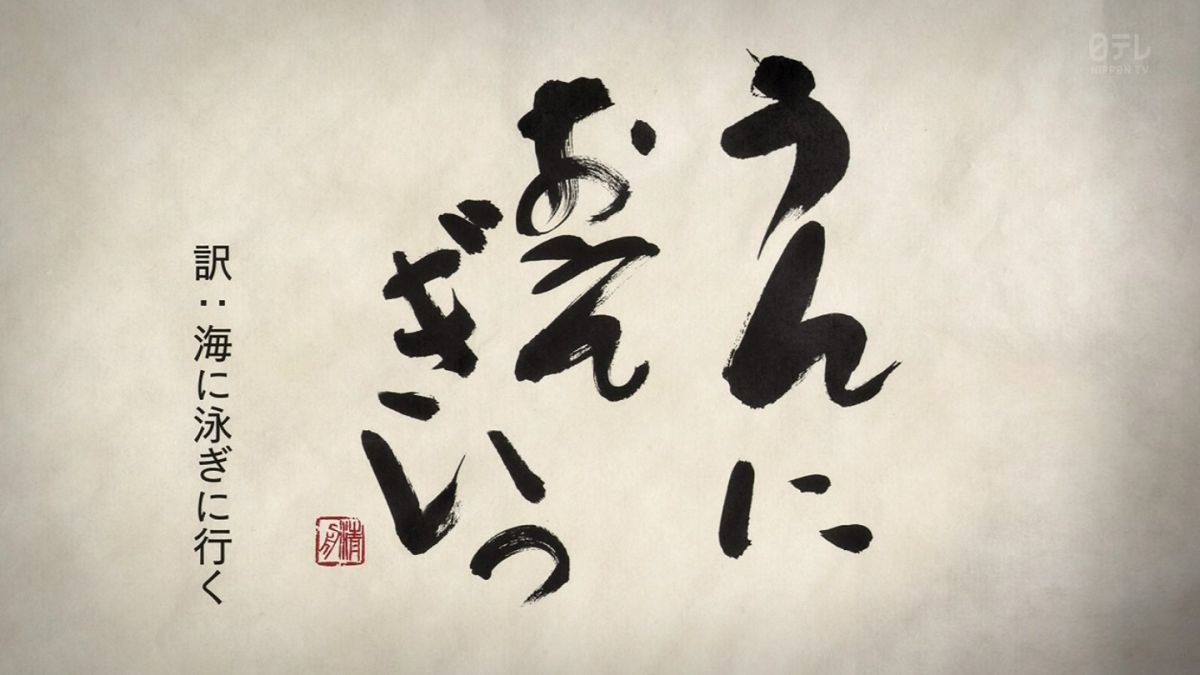 うんに
おえ
ぎいっ
訳：海に泳ぎに行く
清舟
日テレ
NIPPON TV